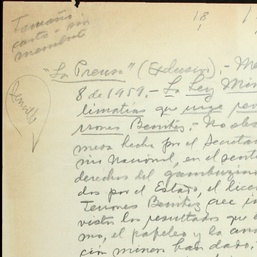 Tamaño
carta, sin
membrete
18
1
"La Prensa" (Exclusivo). - Mé
8 de 1959. - La Ley Min
limatías que urge
rrones Benítez. - No obs
mesa hecha por el Secreta
nio Nacional, en el senti
derechos del gambusino
dos por el Estado, el lice
Terrones Benítez cree
visto los resultados que
mo, el papeleo y la
ción minera han dado,